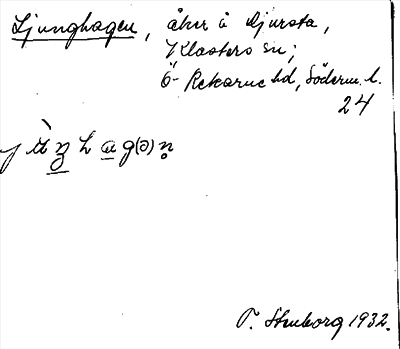 Ljunghagen, åker å Djursta,
Klosters sn;
Ö-Rekarne hd, Söderm. l.
24
T. Stenborg 1932.